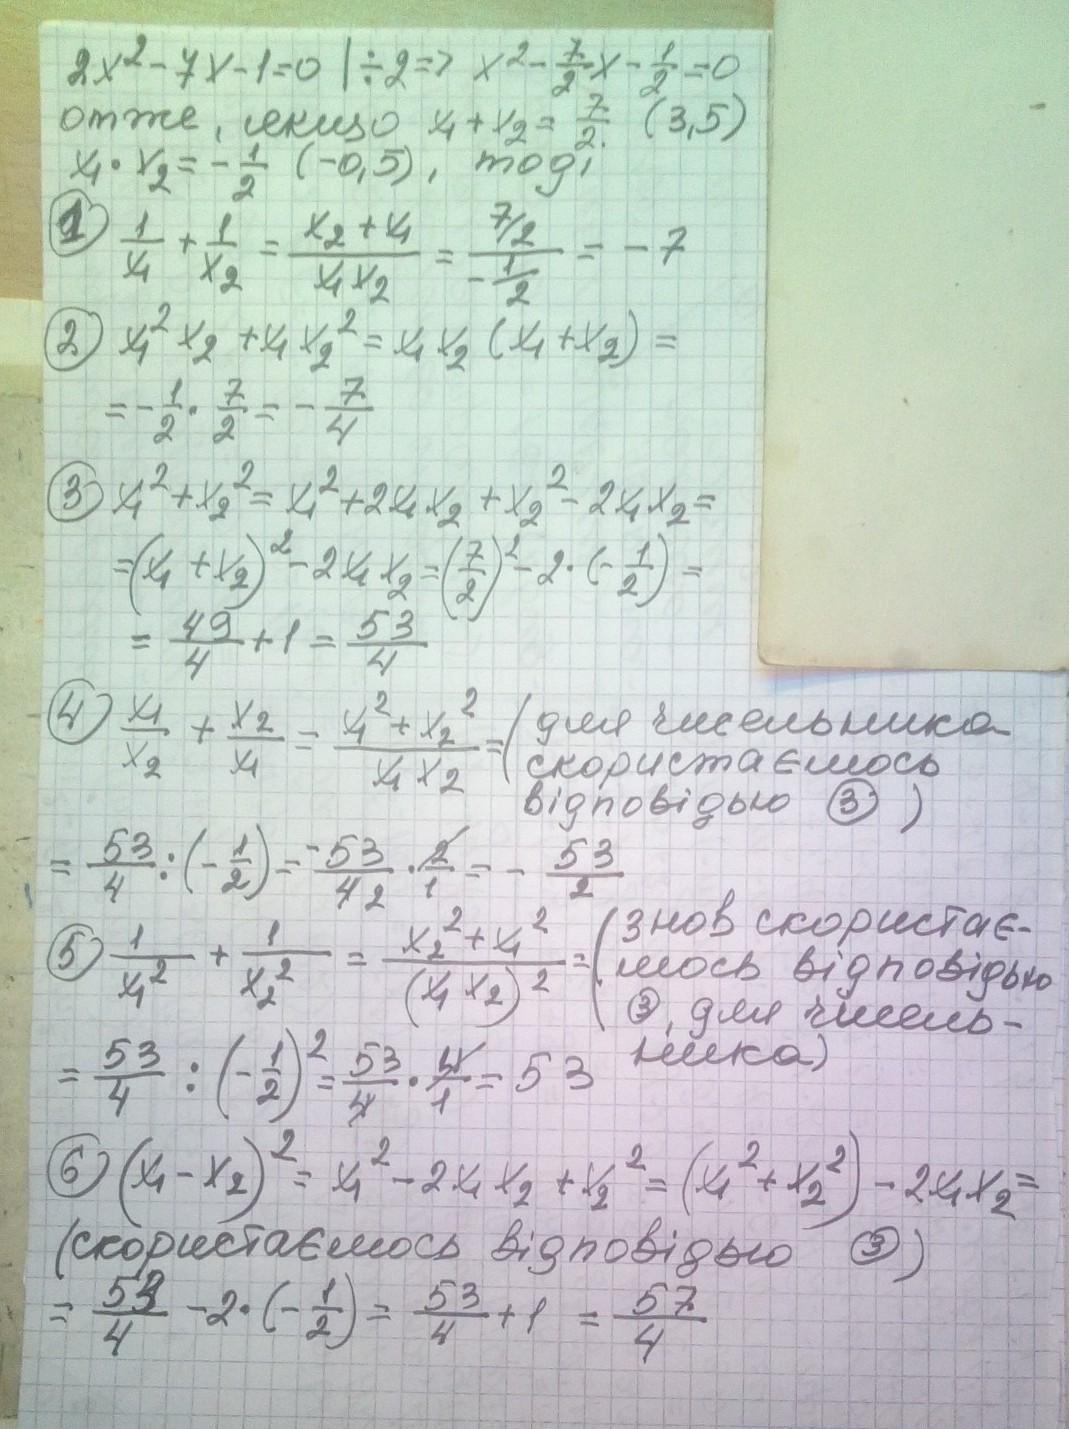 2x² - 7x - 1 = 0 | ÷2 => x² - 7/2 x - 1/2 = 0
отже, якщо x₁ + x₂ = 7/2 (3,5)
x₁ · x₂ = - 1/2 (-0,5), тоді
① 1/x₁ + 1/x₂ = (x₂ + x₁)/(x₁x₂) = (7/2)/(-1/2) = - 7
② x₁²x₂ + x₁x₂² = x₁x₂ (x₁ + x₂) =
= - 1/2 · 7/2 = - 7/4
③ x₁² + x₂² = x₁² + 2x₁x₂ + x₂² - 2x₁x₂ =
= (x₁ + x₂)² - 2x₁x₂ = (7/2)² - 2 · (- 1/2) =
= 49/4 + 1 = 53/4
④ x₁/x₂ + x₂/x₁ = (x₁² + x₂²)/(x₁x₂) = (для чисельника
скористаємось
відповідью ③)
= 53/4 : (- 1/2) = - 53/4 2 · 2/1 = - 53/2
⑤ 1/x₁² + 1/x₂² = (x₂² + x₁²)/(x₁x₂)² = (знов скористає-
мось відповідью
③, для чисель-
ника)
= 53/4 : (- 1/2)² = 53/4 · 4/1 = 53
⑥ (x₁ - x₂)² = x₁² - 2x₁x₂ + x₂² = (x₁² + x₂²) - 2x₁x₂ =
(скористаємось відповідью ③)
= 53/4 - 2 · (- 1/2) = 53/4 + 1 = 57/4